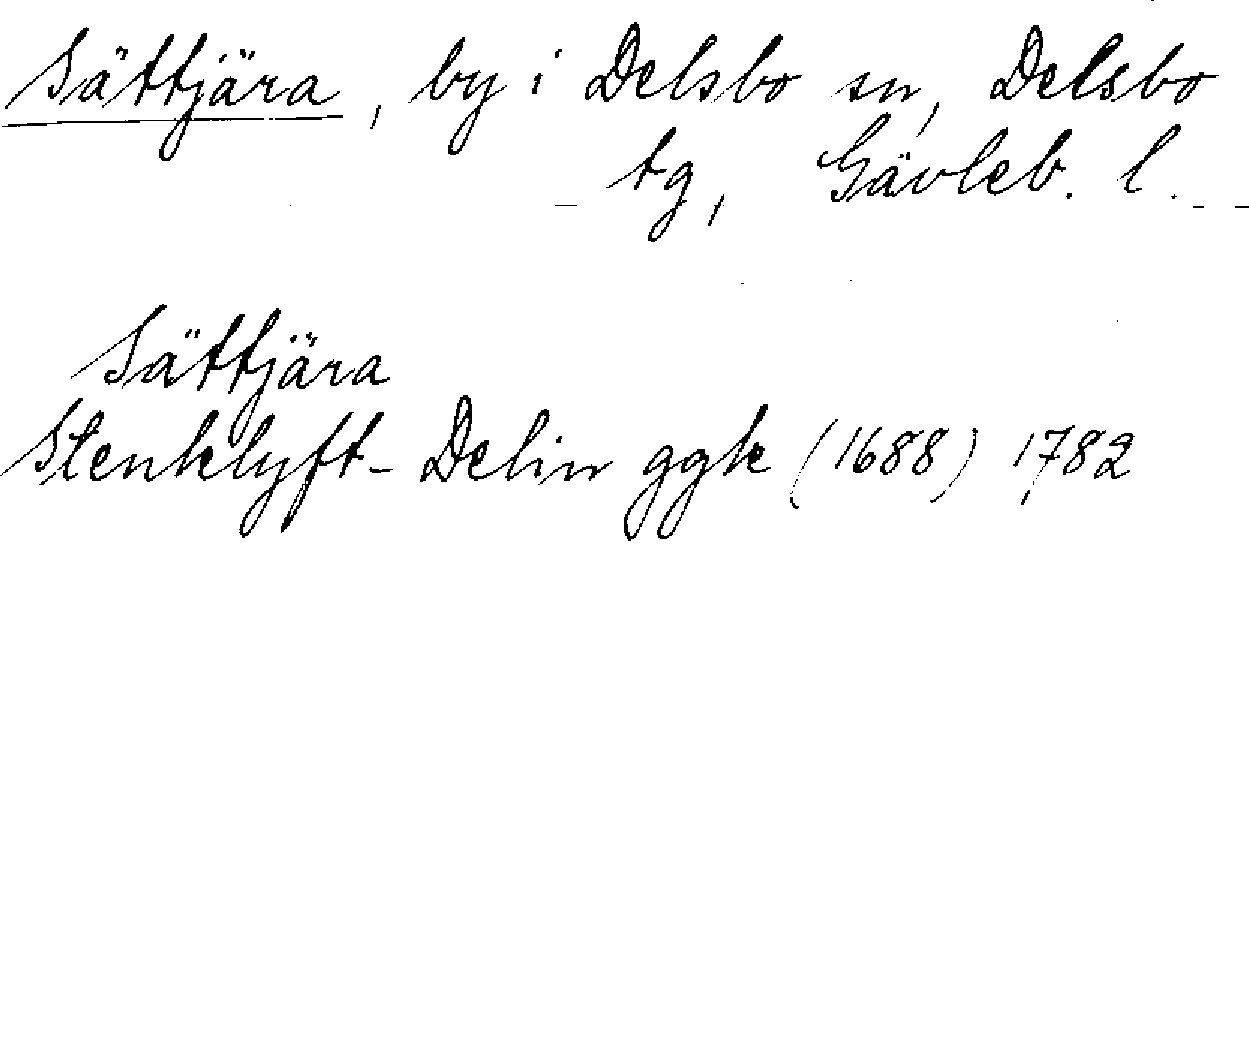 Sättjära, by i Delsbo sn, Delsbo
tg, Gävleb. l.
Sättjära
Stenklyft- Delin ggk (1688) 1782